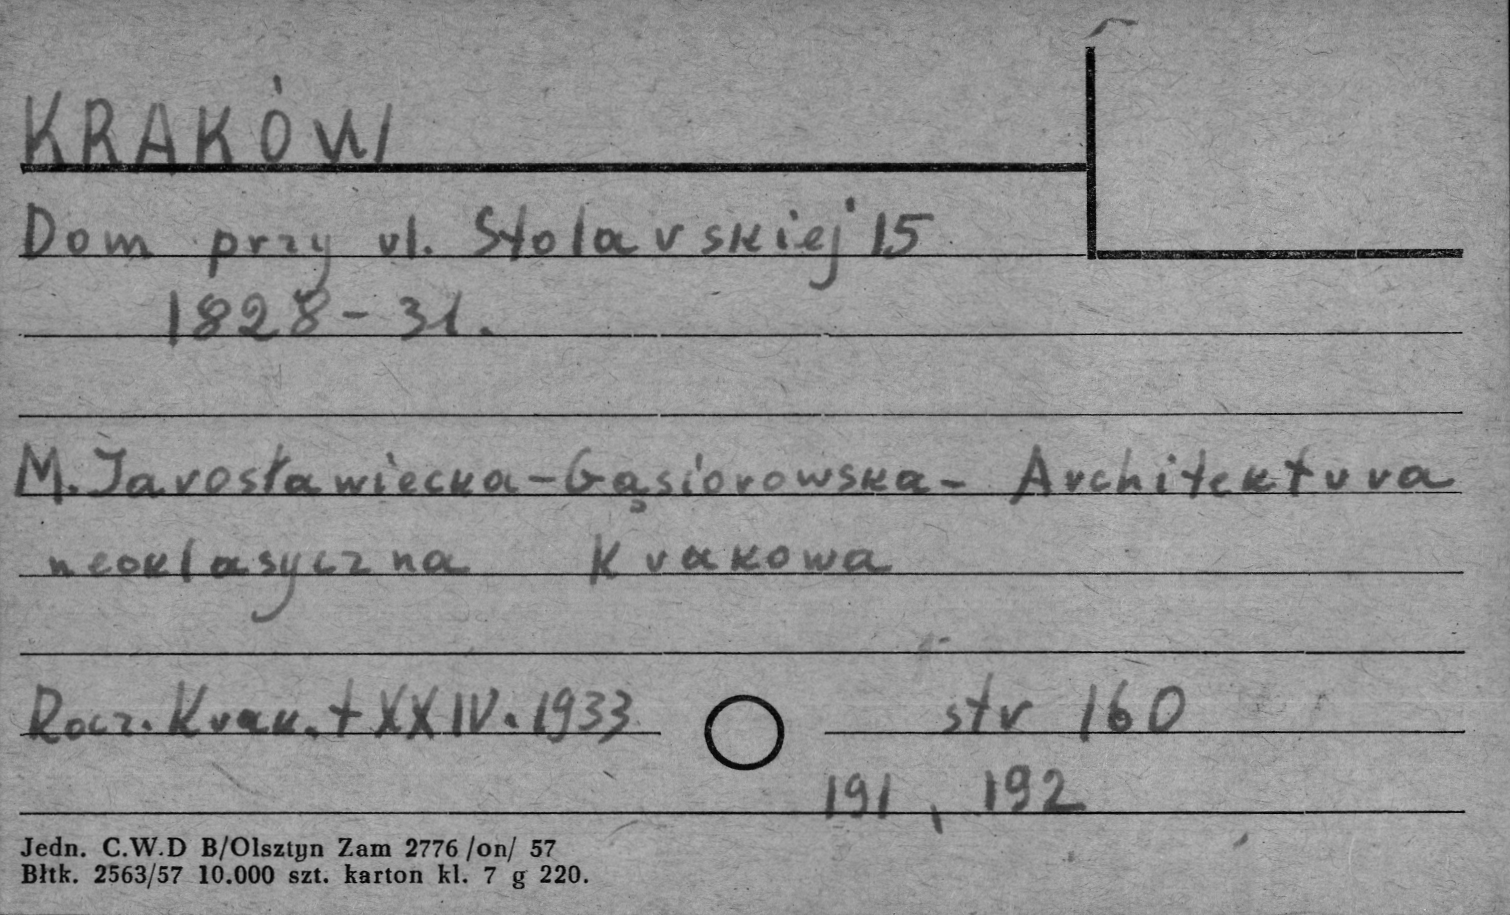 KRAKÓW
Dom przy ul. Stolarskiej 15
1828-31.
M. Jarosławiecka-Gąsiorowska- Architektura
neoklasyczna Krakowa
Rocz. Krak. t XXIV. 1933 str 160
191, 192
Jedn. C.W.D B/Olsztyn Zam 2776 /on/ 57
Błtk. 2563/57 10.000 szt. karton kl. 7 g 220.